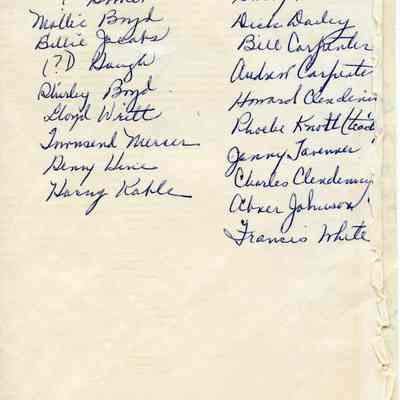 Mollie Boyd
Billie Jacobs
(?) Baugh
Shirley Boyd
Lloyd Writt
Townsend Mercer
Denny Hine
Harry Kahle
Dick Dailey
Bill Carpenter
Andrew Carpente
Howard Clendenin
Phoebe Knott (
Janny Tavenner
Charles Clendenin
Abner Johnson
Francis White